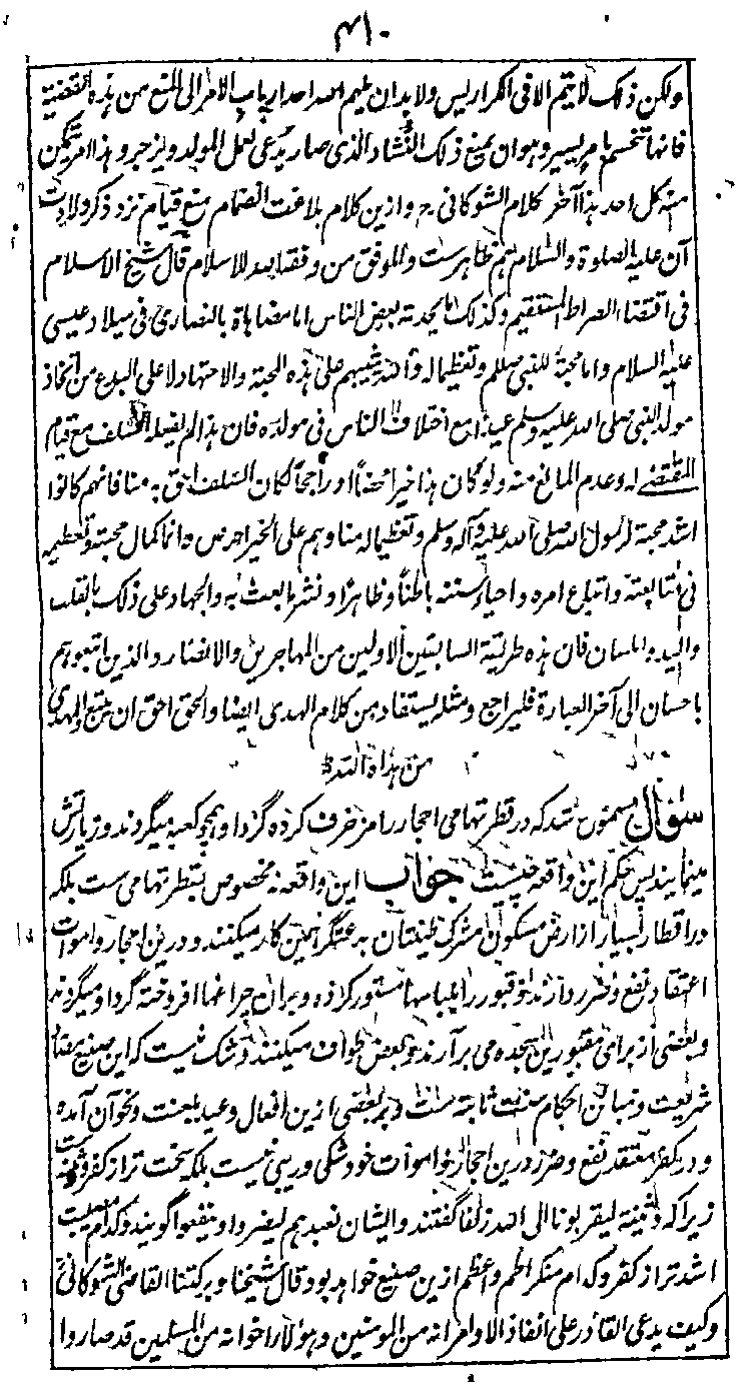 ۴۱۰
ولکن ذلک لا یتم الا فی الکراریس ولا بد ان یلهم الله احد ارباب الامر الی المنع من هذه القضیة
فانها تنحسم بامر یسیر وهو ان یمنع ذلک النشاد الذی صار یدعی لعمل المولد ویزجر وهذا امر یتمکن
منه کل احد هذا آخر کلام الشوکانی رح وازین کلام بلاغت انضمام منع قیام نزد ذکر ولادت
آن علیه الصلوة والسلام هم ظاهرست والموفق من وفقه الله للاسلام قال شیخ الاسلام
فی اقتضاء الصراط المستقیم وکذلک ما یحدثه بعض الناس اما مضاهاة بالنصاری فی میلاد عیسی
علیه السلام واما محبة للنبی صلعم وتعظیما له والله یثیبهم علی هذه المحبة والاجتهاد لا علی البدع من اتخاذ
مولد النبی صلی الله علیه وسلم عیدا مع اختلاف الناس فی مولده فان هذا لم یفعله السلف مع قیام
المقتضی له وعدم المانع منه ولو کان هذا خیرا محضا او راجحا لکان السلف احق به منا فانهم کانوا
اشد محبة لرسول الله صلی الله علیه وآله وسلم وتعظیما له منا وهم علی الخیر احرص وانما کمال محبته وتعظیمه
فی متابعته واتباع امره واحیاء سنته باطنا وظاهرا ونشر ما بعث به والجهاد علی ذلک بالقلب
والید واللسان فان هذه طریقة السابقین الاولین من المهاجرین والانصار والذین اتبعوهم
باحسان الی آخر العبارة فلیراجع ومثله یستفاد من کلام الهدی ایضا والحق احق ان یتبع والمهدی
من هداه الله
سؤال مسموع شد که در قطر تهامی احجار را مزخرف کرده گرد او همچو کعبه میگردند وزیارتش
مینمایند پس حکم این واقعه چیست جواب این واقعه نه مخصوص بقطر تهامی ست بلکه
در اقطار بسیار از ارض مسکون مشرک طینتان بدعتگر همین کار میکنند و درین احجار واموات
اعتقاد نفع وضرر دارند وقبور را بلباسها مستور کرده و بران چراغها افروخته گرد او میگردند
وبعضی از برای مقبورین سجده می برآرند وبعض طواف میکنند وشک نیست که این صنیع مضاد
شریعت ومباین احکام سنت ثابته ست وبر بعضی ازین افعال وعید بلعنت ونحو آن آمده
ودر کفر معتقد نفع وضرر درین احجار واموات خود شکی وریبی نیست بلکه سخت تر از کفر وثنیه ست
زیرا که وثنیه لیقربونا الی الله زلفا گفتند وایشان نعبدهم لیضروا وینفعوا گویند وکدام مصیبت
اشد تر از کفر وکدام منکر اطم واعظم ازین صنیع خواهد بود قال شیخنا وبرکتنا القاضی الشوکانی
وکیف یدعی القادر علی انفاذ الاوامر انه من المومنین وهؤلاء اخوانه من المسلمین قد صاروا